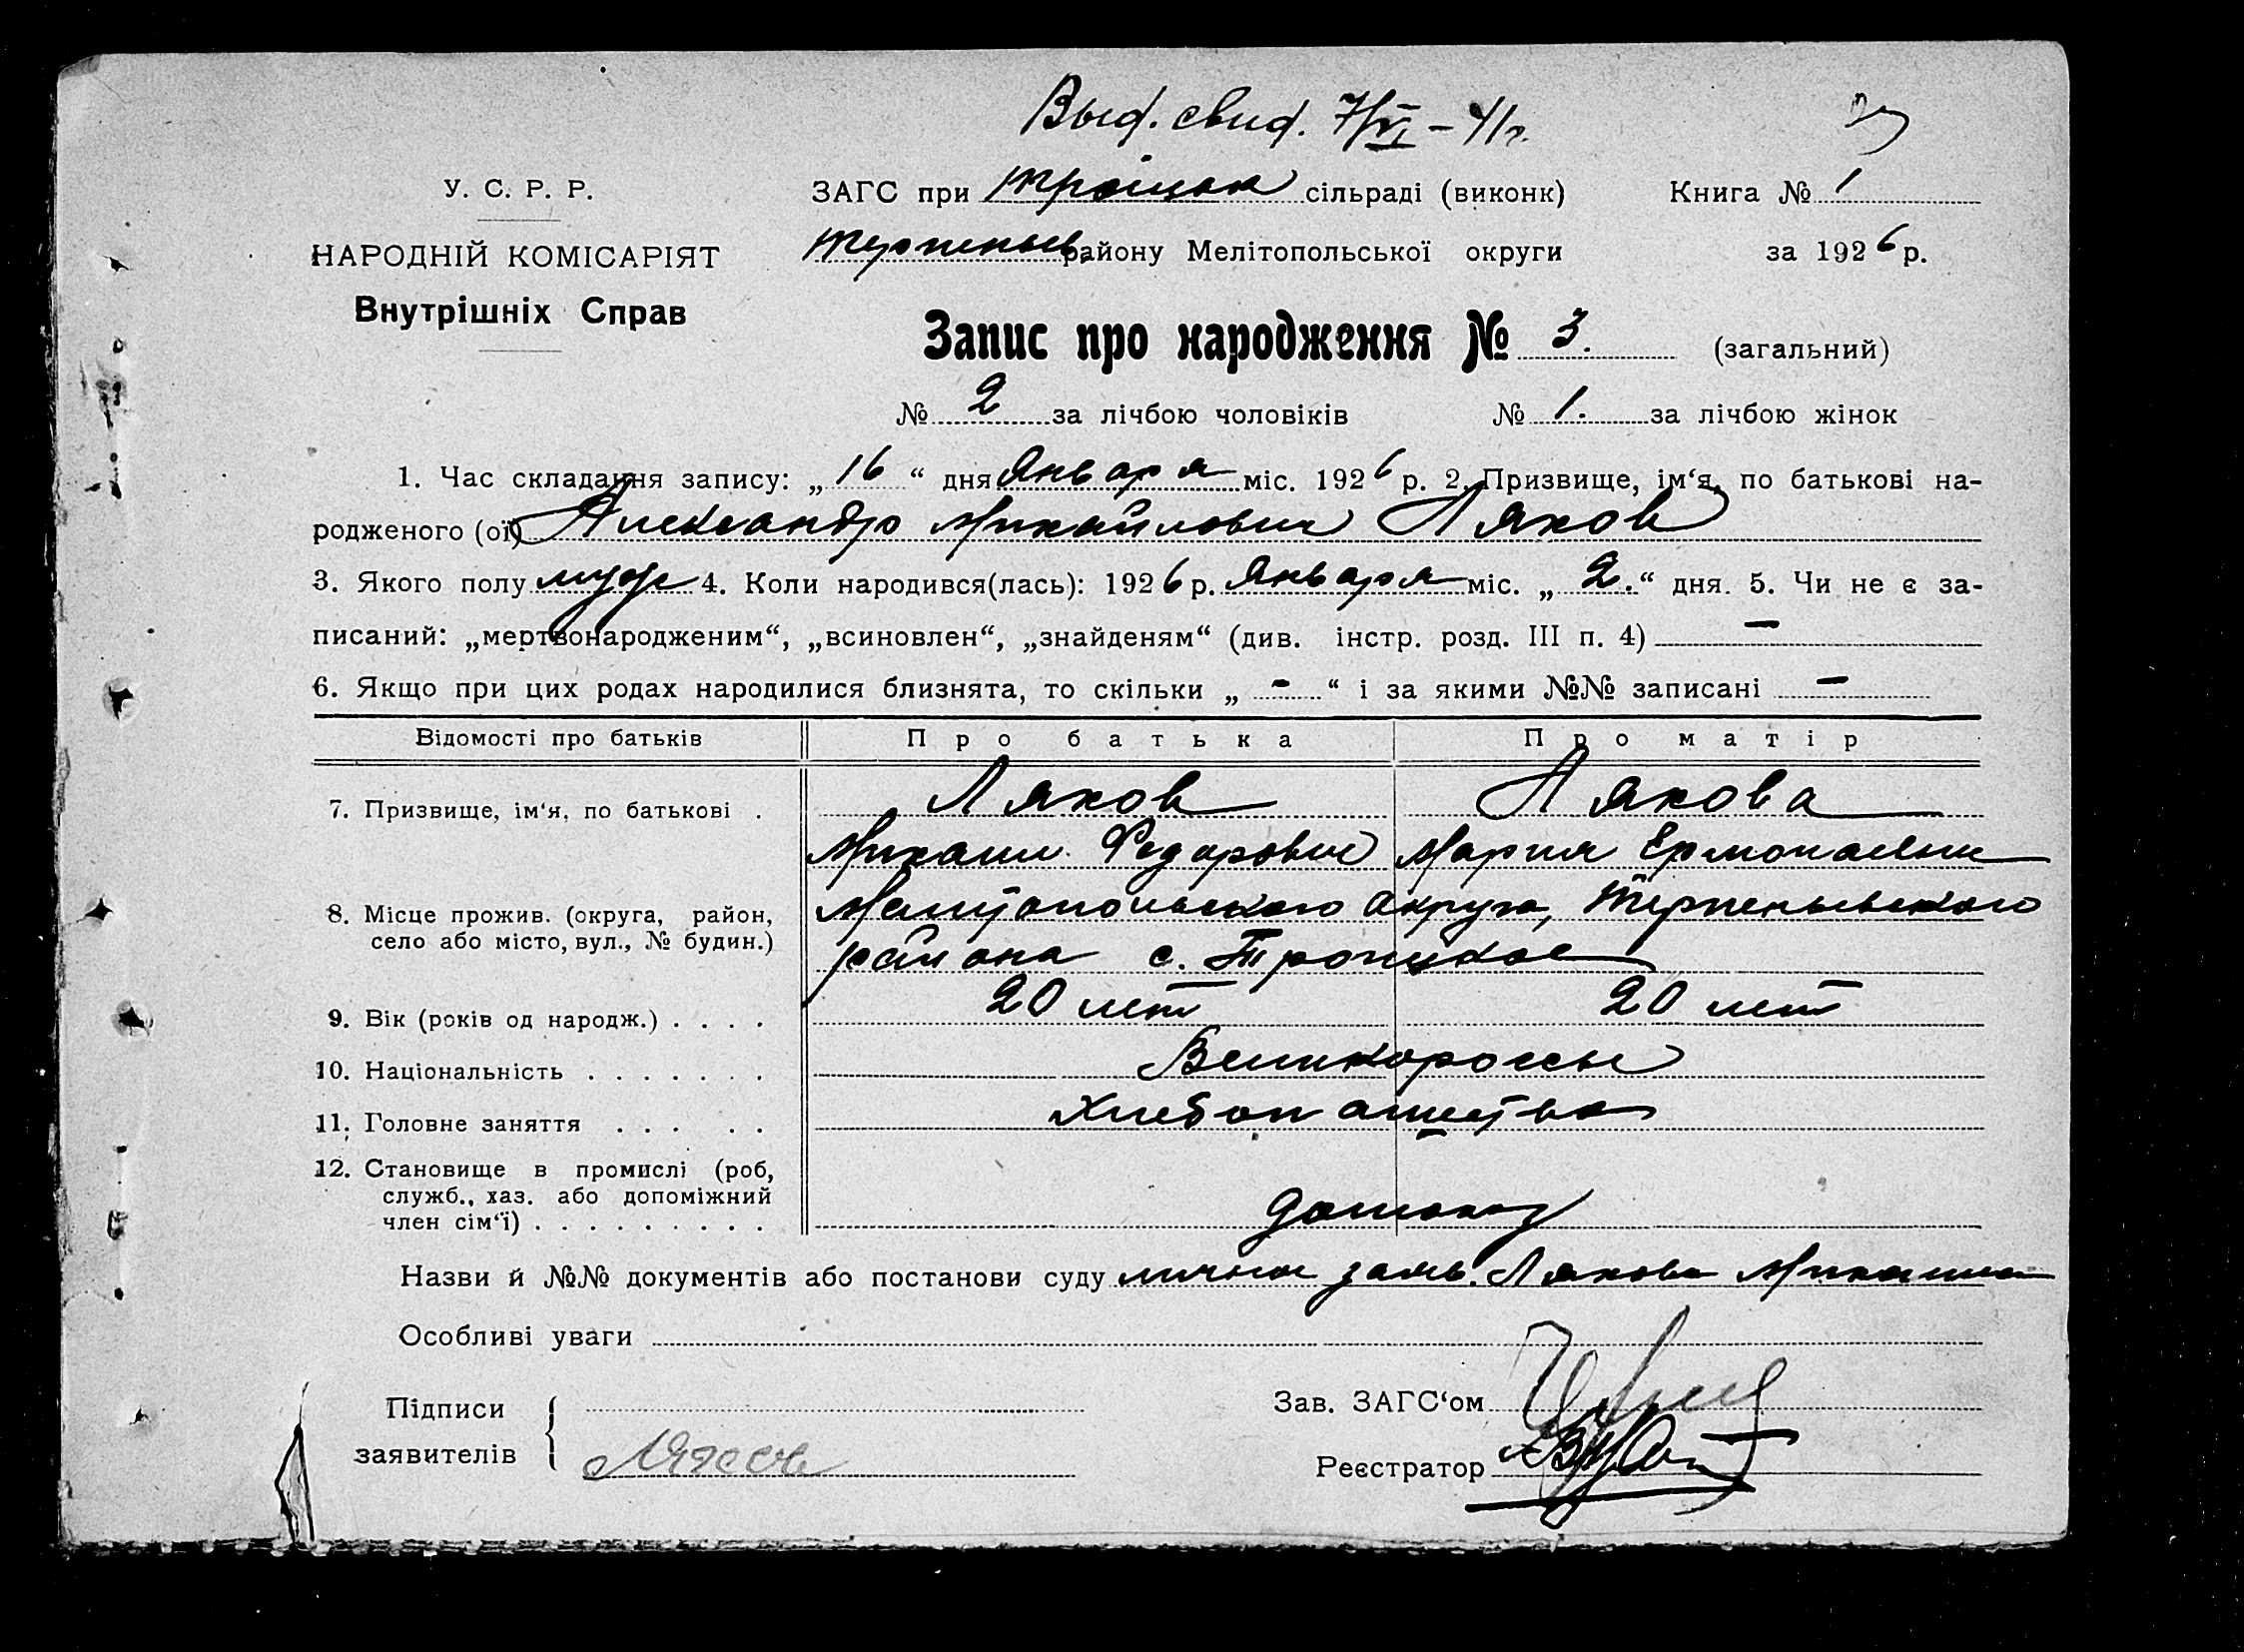 Выд. свид. 7/VI – 41 г.
У. С. Р. Р.
ЗАГС при Троіцком сільраді (виконк)
Книга № 1
НАРОДНІЙ КОМІСАРІЯТ
Терпеньев. району Мелітопольської округи
за 1926 р.
Внутрішніх Справ
Запис про народження № 3. (загальний)
№ 2 за лічбою чоловіків № 1. за лічбою жінок
1. Час складання запису: „16“ дня Января міс. 1926 р. 2. Призвище, ім‘я, по батькові на-
родженого (ої) Александр Михайлович Ляхов
3. Якого полу муж 4. Коли народився(лась): 1926 р. Января міс. „2.“ дня. 5. Чи не є за-
писаний: „мертвонародженим“, „всиновлен“, „знайденям“ (див. інстр. розд. III п. 4) –
6. Якщо при цих родах народилися близнята, то скільки „ - “ і за якими №№ записані –
Відомості про батьків
Про батька
Про матір
7. Призвище, ім‘я, по батькові .
Ляхов
Ляхова
Михаил Федорович
Мария
8. Місце прожив. (округа, район,
село або місто, вул., № будин.)
Мелитопольского Округа, Терпеньевского
района с. Троицкое
9. Вік (років од народж.) . . . .
20 лет
20 лет
10. Національність . . . . . . .
Великороссы
11. Головне заняття . . . . .
Хлебопашество
12. Становище в промислі (роб,
служб., хаз. або допоміжний
член сім‘ї) . . . . . . . . .
Назви й №№ документів або постанови суду личное заяв. Ляхова Михаила
Особливі уваги
Підписи
заявителів
Ляхов
Зав. ЗАГС‘ом
Реєстратор